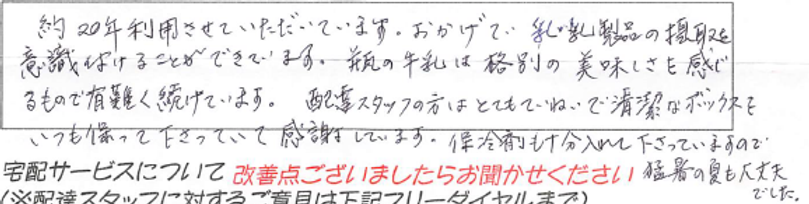 約20年利用させていただいています。おかげで 乳製品の摂取を
意識付けることができています。瓶の牛乳は格別の美味しさを感じ
るもので有難く続けています。 配達スタッフの方はとてもていねいで清潔なボックスを
いつも保って下さっていて感謝しています。保冷剤も十分入れて下さっていますので
宅配サービスについて 改善点ございましたらお聞かせください 猛暑の夏も大丈夫
でした。
(※配達スタッフに対するご意見は下記フリーダイヤルまで)